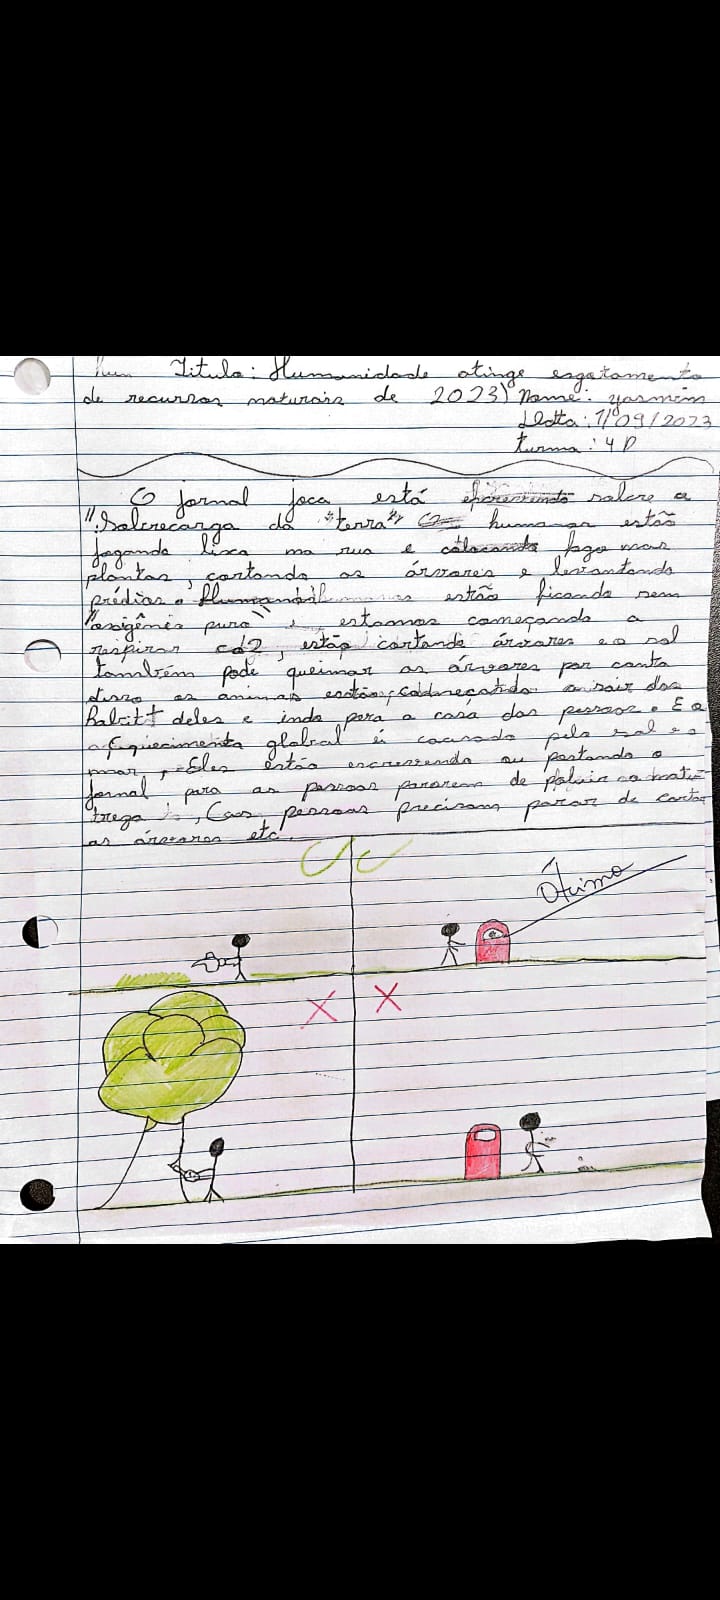 Titulo: Humanidade atinge esgotamento
de recursos naturais de 2023) Nome: yasmim
Data: 1/09/2023
turma: 4 D
O jornal joca está escrevendo sobre a
"Sobrecarga da "terra" humanos estão
jogando lixo na rua e colocando fogo nas
plantas, cortando as árvores e levantando
prédios. Humanos estão ficando sem
"oxigênio puro" e estamos começando a
respirar co2, estão cortando árvores e o sol
também pode queimar as árvores por conta
disso os animas estão, começando a sair dos
habitt deles e indo para a casa das pessoas. E o
aquecimento global é causado pelo sol e o
mar, Eles estão escrevendo ou postando o
jornal para as pessoas pararem de poluir a natu
reza, as pessoas precisam parar de cortar
as árvores etc.
Ótimo